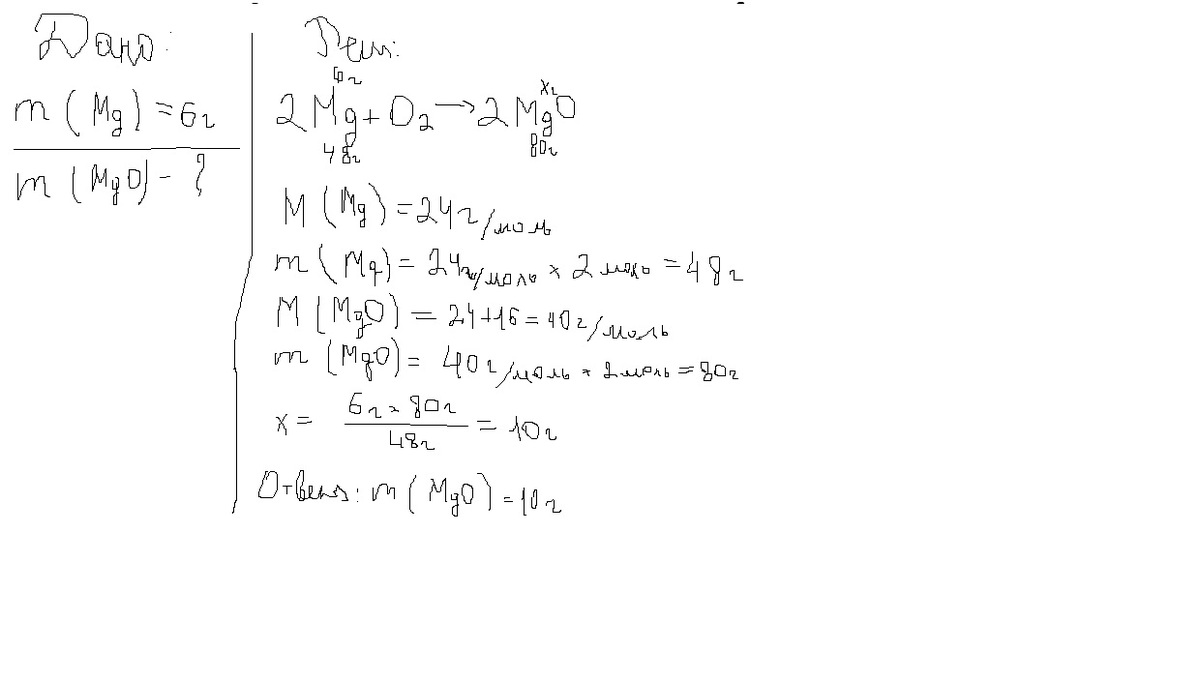 Дано:
m (Mg) = 6г
m (MgO) - ?
Реш:
6г хг
2Mg + O2 → 2MgO
48г 80г
M (Mg) = 24г/моль
m (Mg) = 24г/моль × 2 моль = 48г
M (MgO) = 24+16 = 40г/моль
m (MgO) = 40г/моль × 2моль = 80г
x = 6г × 80г / 48г = 10г
Ответ: m (MgO) = 10г